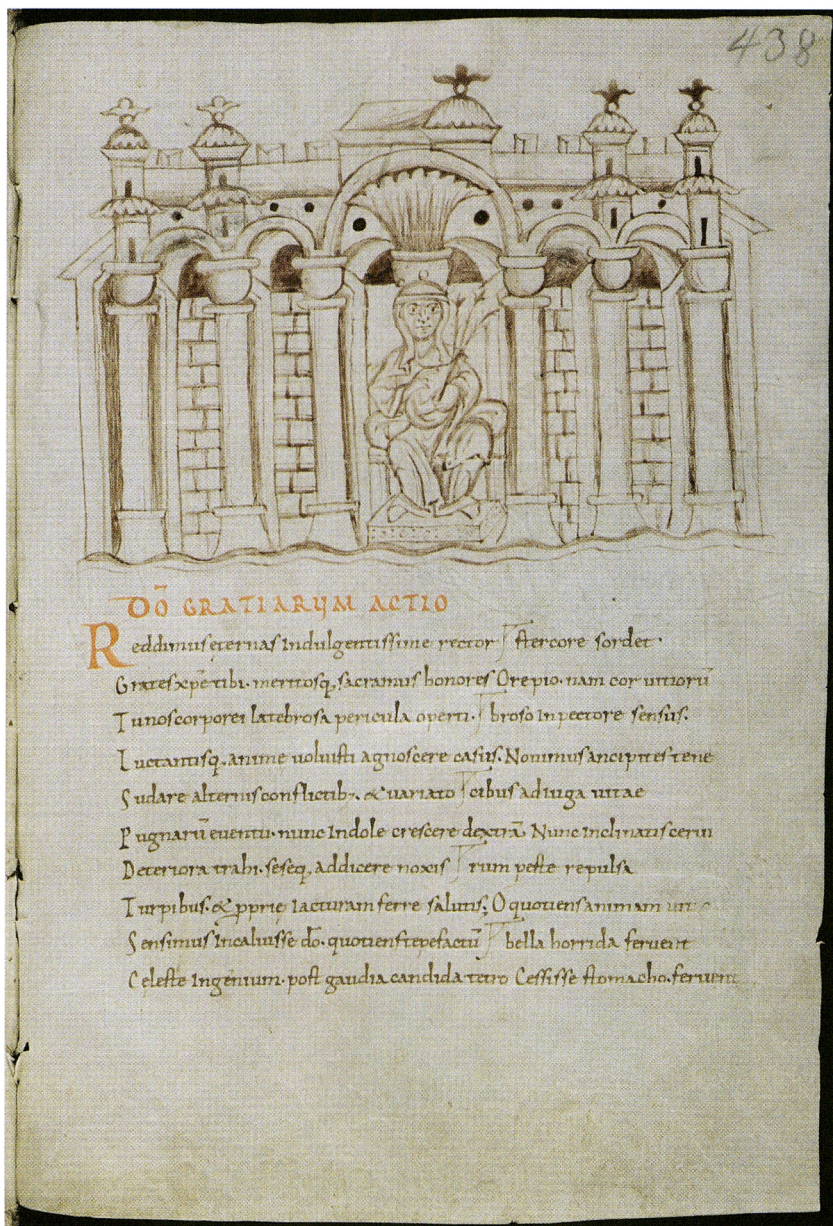 438
DŌ GRATIARUM ACTIO
Reddimus ęternas indulgentissime rector stercore sordet·
Grates xp̄e tibi· meritosq; sacramus honores Ore pio· nam cor uitiorū
Tu nos corporei latebrosa pericula operti· broso in pectore sensus·
Luctantisq; anime uoluisti agnoscere casus· Nouimus ancipites tene
Sudare alternis conflictib; & uariato cibus ad iuga uitae
Pugnarū euentu· nunc indole crescere dextrā Nunc inclinatis cerui
Deteriora trahi· seseq; addicere noxis rum peste repulsa
Turpibus· & ꝓprię iacturam ferre salutis; O quotiens animam
Sensimus incaluisse dō· quotiens tepefactū bella horrida feruent
Celeste ingenium· post gaudia candida tetro Cessisse stomacho· feruent